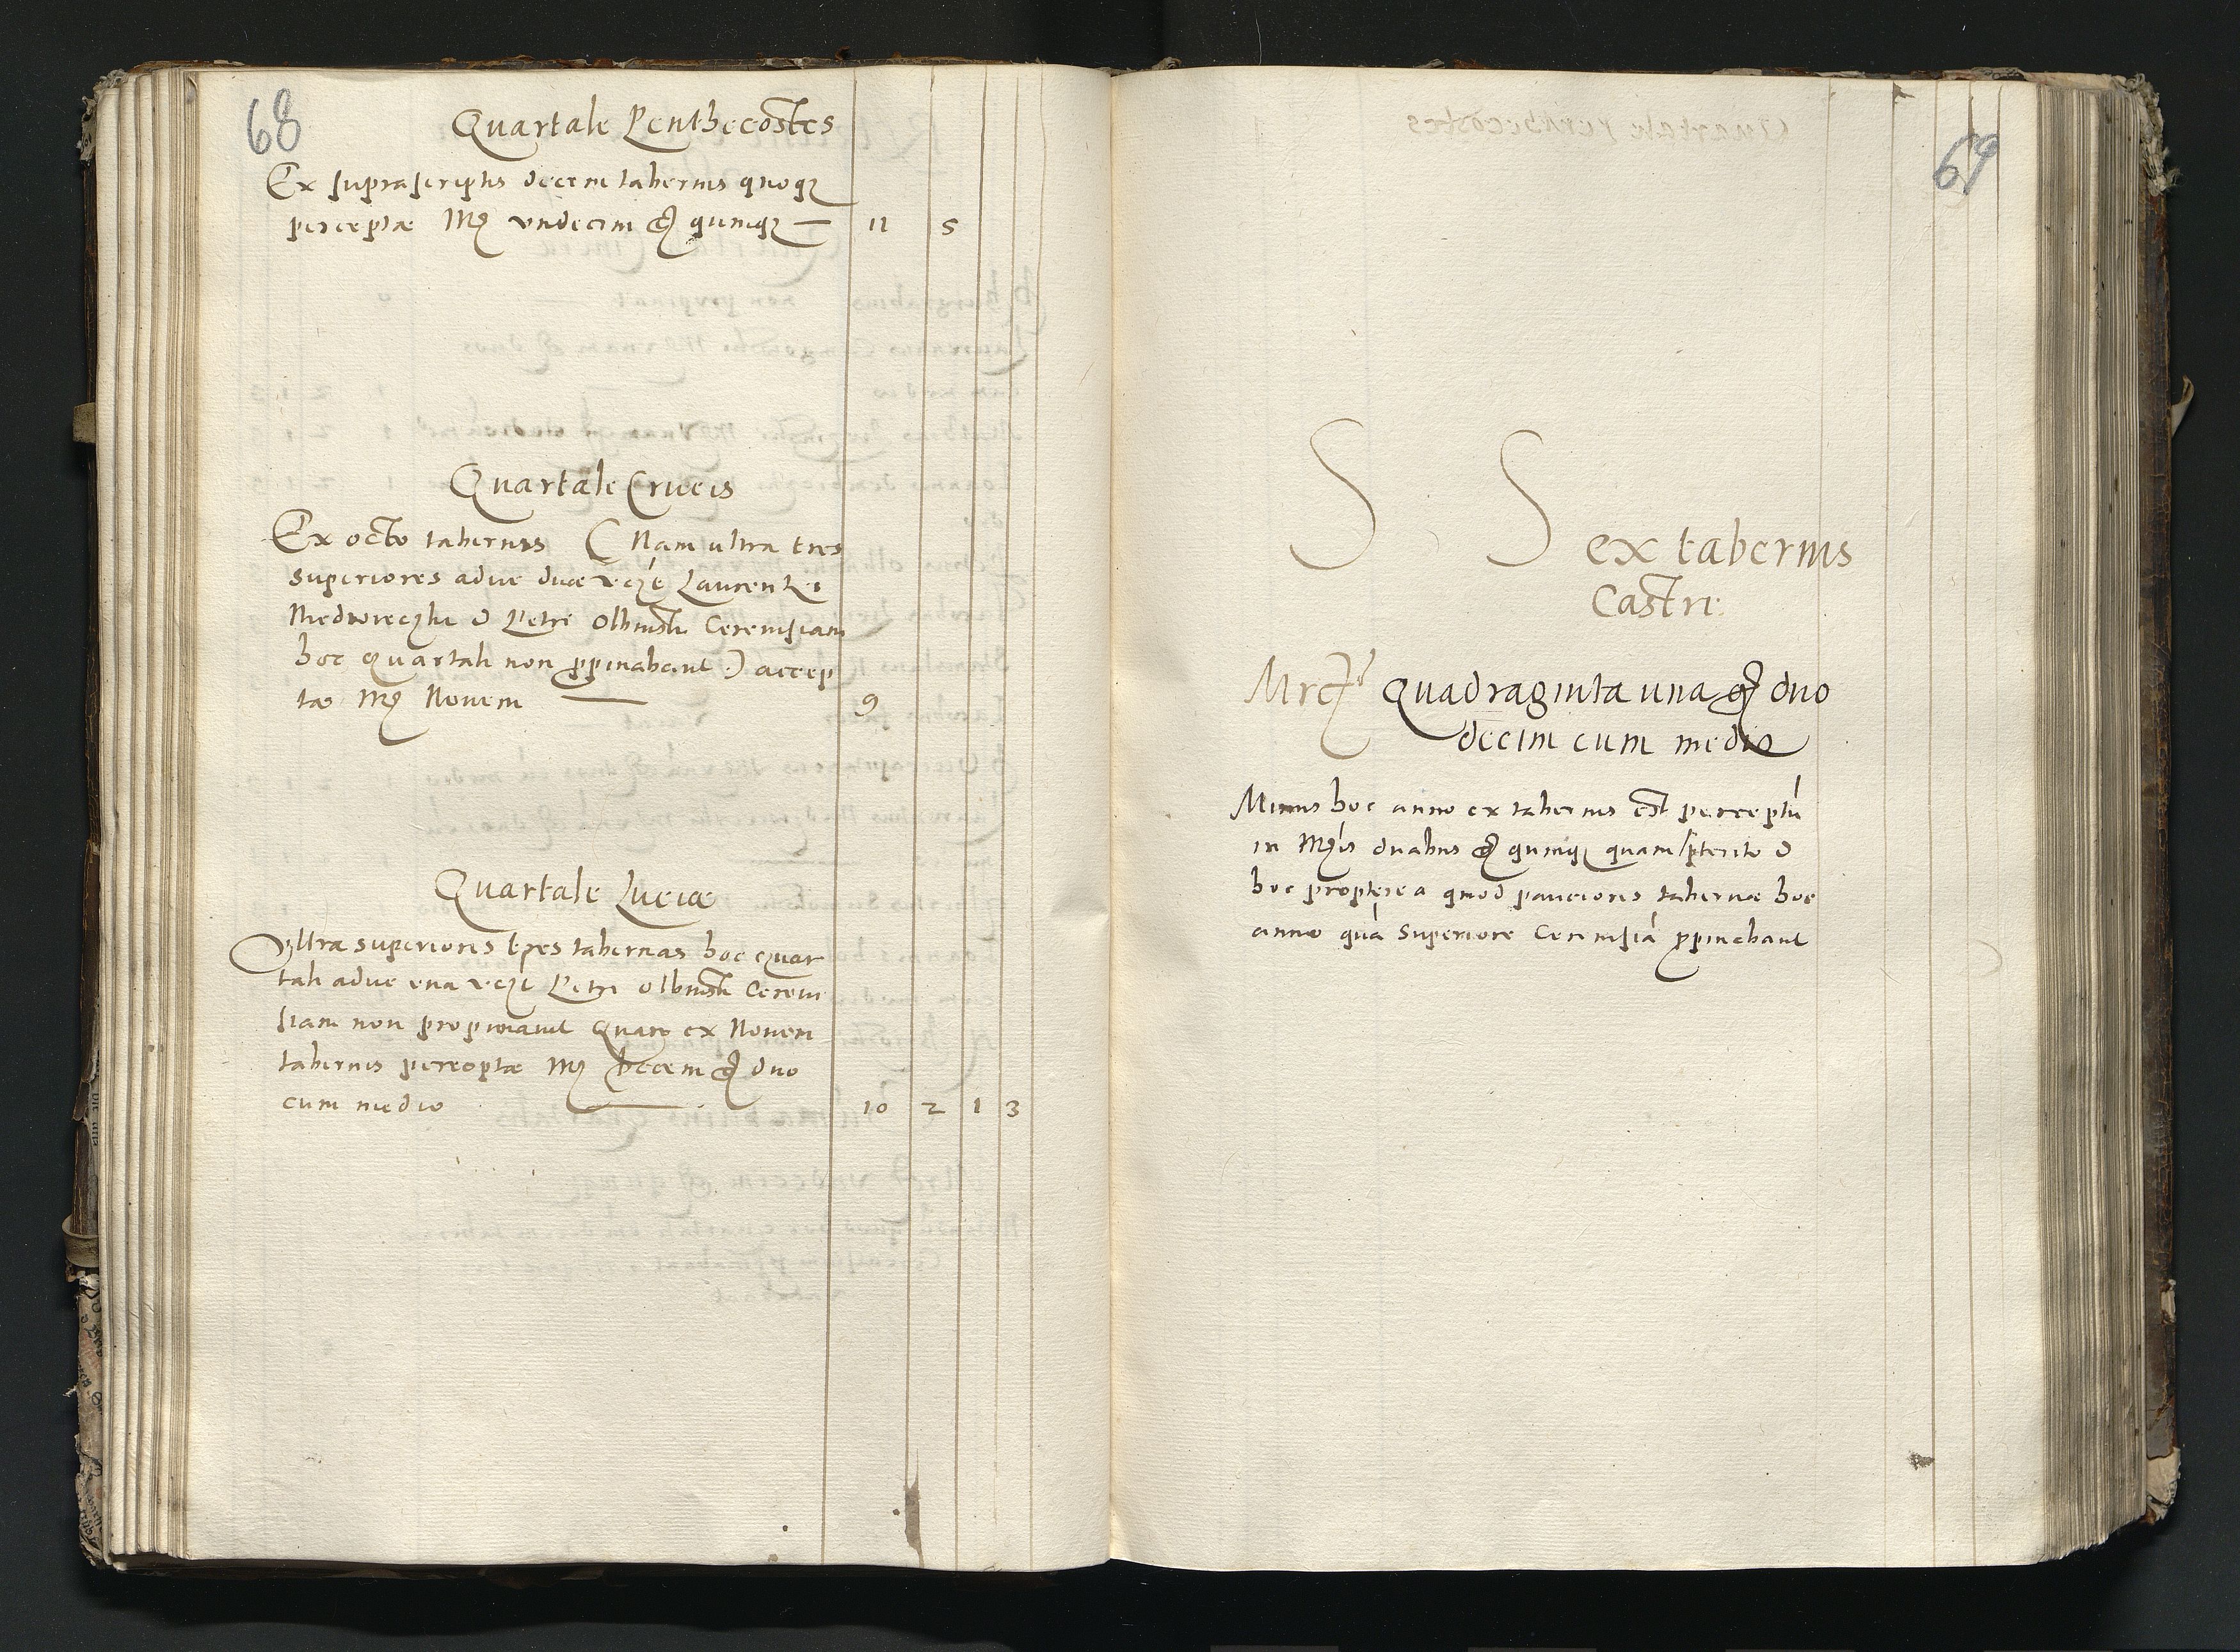 68
Quartale Penthecostes
Ex suprascriptis decem tabernis quoqz
perceptae Mrz undecim gr quinqz — 11 5
Quartale Crucis
Ex octo tabernis ( Nam ultra tres
superiores aduc duae Laurentei
& Petri Olbinsti Cerevisiam
hoc quartali non ppinabant ) accep
tae Mrz Novem — 9
Quartale Luciae
Ultra superioris tres tabernas hoc quar
tali aduc una Petri Olbinsti Cerevi
siam non propinavit Quare ex Novem
tabernis perceptae Mrz decem gr duo
cum medio — 10 2 1 3
69
S S ex tabernis
Castri
Mrcz Quadraginta una gr duo
decim cum medio
Minus hoc anno ex tabernis est perceptū
in Mrzis duabus gr quinqz quam pterito &
hoc propterea quod pauciores tabernae hoc
anno quā superiore Cerevisiā ppinabant